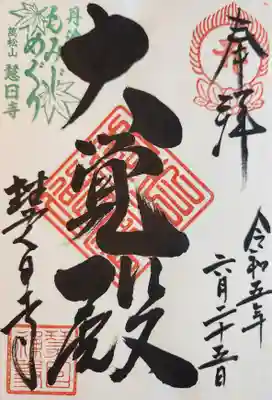 奉拝
令和五年
六月二十五日
大覚殿
丹波
もみじ
めぐり
萬松山
慧日寺
慧日寺